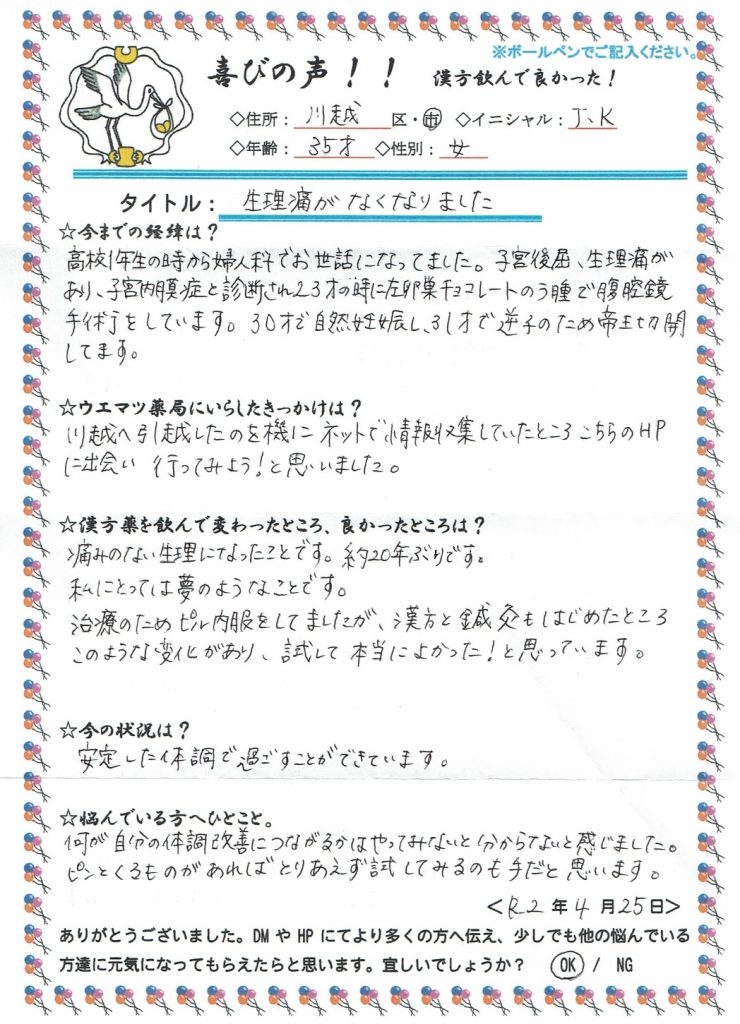 ※ボールペンでご記入ください。
喜びの声！！ 漢方飲んで良かった！
◇住所： 川越 区・市 ◇イニシャル： J.K
◇年齢： 35才 ◇性別： 女
タイトル： 生理痛がなくなりました
☆今までの経緯は？
高校1年生の時から婦人科でお世話になってました。子宮後屈、生理痛が
あり、子宮内膜症と診断され23才の時に左卵巣チョコレートのう腫で腹腔鏡
手術をしています。30才で自然妊娠し、31才で逆子のため帝王切開
してます。
☆ウエマツ薬局にいらしたきっかけは？
川越へ引越したのを機にネットで情報収集していたところこちらのHP
に出会い 行ってみよう！と思いました。
☆漢方薬を飲んで変わったところ、良かったところは？
痛みのない生理になったことです。約20年ぶりです。
私にとっては夢のようなことです。
治療のためピル内服をしてましたが、漢方と鍼灸もはじめたところ
このような変化があり、試して本当によかった！と思っています。
☆今の状況は？
安定した体調で過ごすことができています。
☆悩んでいる方へひとこと。
何が自分の体調改善につながるかはやってみないと分からないと感じました。
ピンとくるものがあればとりあえず試してみるのも手だと思います。
＜R2 年 4 月 25日＞
ありがとうございました。DM や HP にてより多くの方へ伝え、少しでも他の悩んでいる
方達に元気になってもらえたらと思います。宜しいでしょうか？ OK / NG